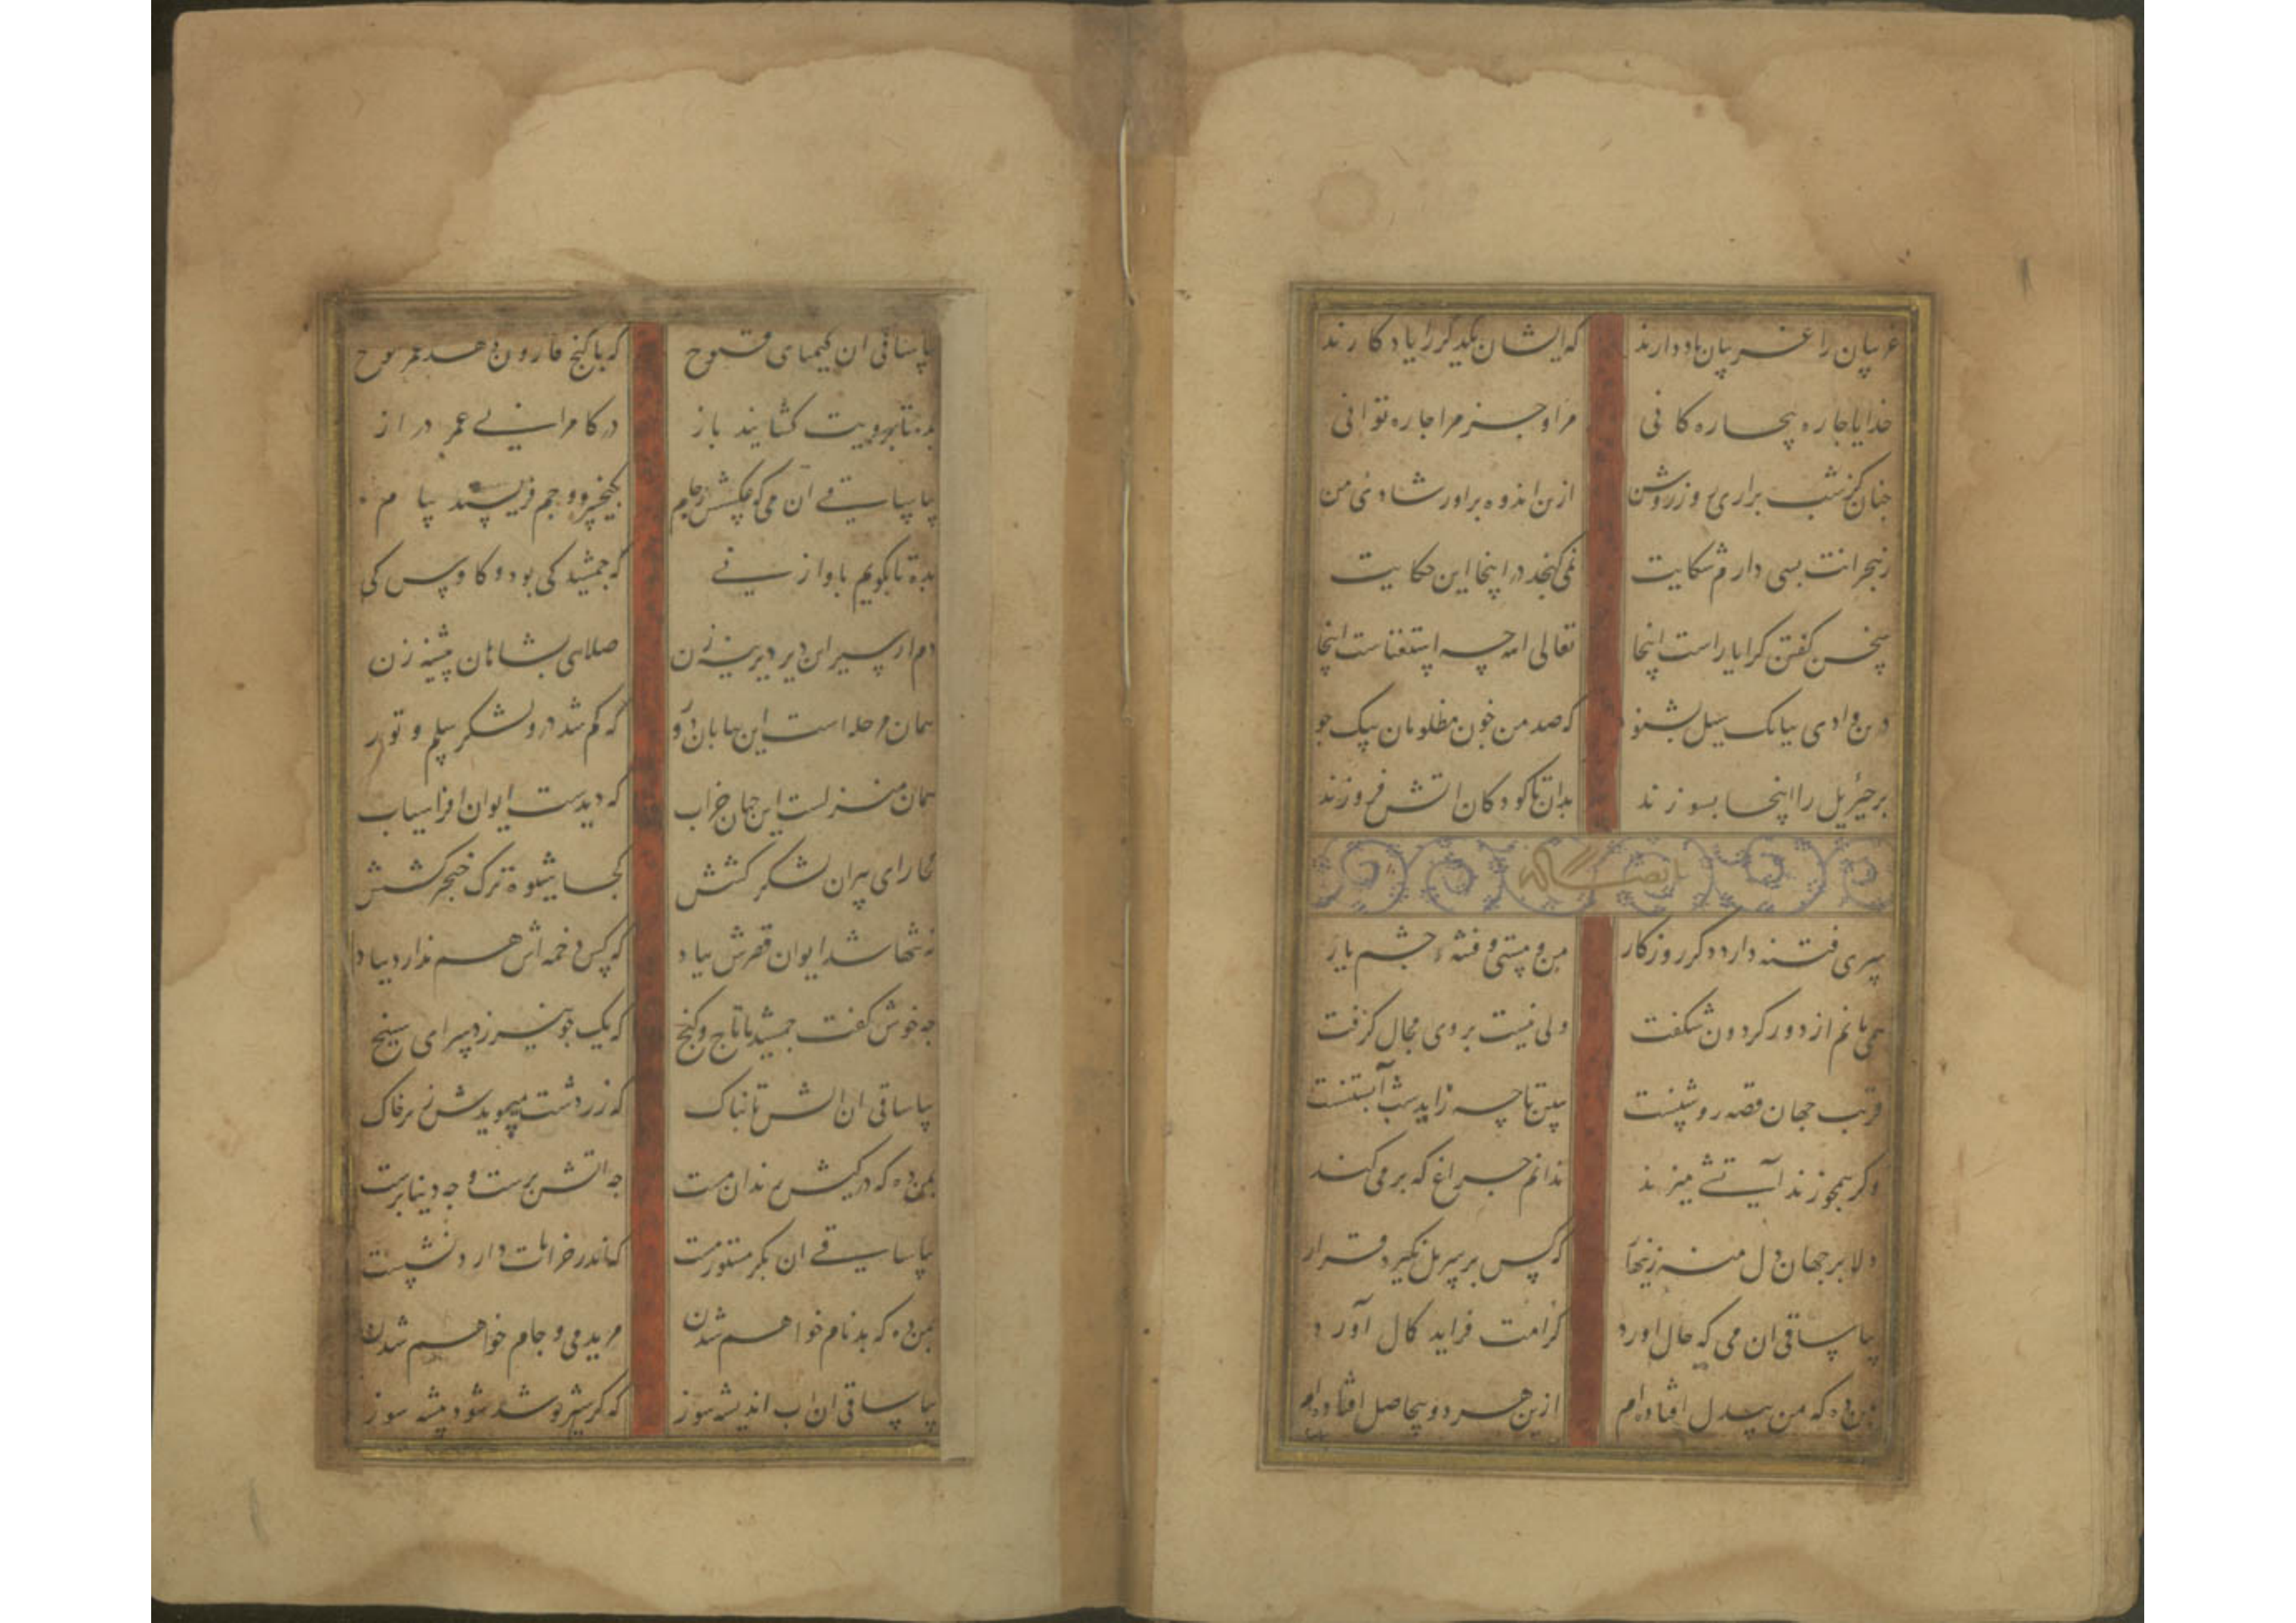 غریبان را غریبان یاد دارند که ایشان یکدیگر را یادکارند
خدایا جاره بیجاره کانی مرا و جز مرا جاره توانی
جنان کز شب براری روز روشن ازین اندوه براور شادی من
زهجرانت بسی دارم شکایت نمی کنجد در اینجا این حکایت
سخن کفتن کرا یاراست اینجا تعالی الله چه استغناست اینجا
درین وادی ببانک سیل بشنو که صد من خون مظلومان بیک جو
پر جبرئیل را اینجا بسوزند بدان تا کودکان اتش فروزند
سری فتنه دارد دکر روزکار من و مستی و فتنهٔ جشم یار
همی مانم از دور کردون شکفت ولی نیست بر وی مجال کرفت
فریب جهان قصه روشنست ببین تا چه زاید شب آبستنست
وکر همچو زند آتشی میزند ندانم جراغ که بر می کند
دلا بر جهان دل منه زینهار که کس بر سر پل نکیرد قرار
بیا ساقی ان می که حال اورد کرامت فزاید کمال آورد
بمن ده که من بیدل افتاده ام ازین هر دو بیحاصل افتاده ام
بیا ساقی ان کیمیای فتوح که با کنج قارون دهد عمر نوح
بده تا برویت کشایند باز در کامرانی عمر دراز
بیا ساقی آن می که عکسش زجام بکیخسرو و جم فرستد پیام
بده تا بکویم باواز نی که جمشید کی بود و کاوس کی
دم از سیر این دیر دیرینه زن صلای بشاهان پیشینه زن
همان مرحله است این بیابان دور که کم شد درو لشکر سلم و تور
همان منزلست این جهان خراب که دیدست ایوان افراسیاب
کجا رای پیران لشکر کشش کجا شیوه ترک خنجر کشش
نه تنها شد ایوان قصرش بباد که کس دخمه اش هم ندارد بیاد
چه خوش کفت جمشید با تاج و کنج که یک جو نیرزد سرای سپنج
بیا ساقی ان اتش تابناک که زردشت میجویدش زیر خاک
بمن ده که در کیش رندان مست جه اتش پرست و جه دنیا پرست
بیا ساقی ان بکر مستور مست که اندر خرابات دارد نشست
بمن ده که بدنام خواهم شدن مرید می و جام خواهم شدن
بیا ساقی ان اب اندیشه سوز که کر شیر نوشد شود بیشه سوز